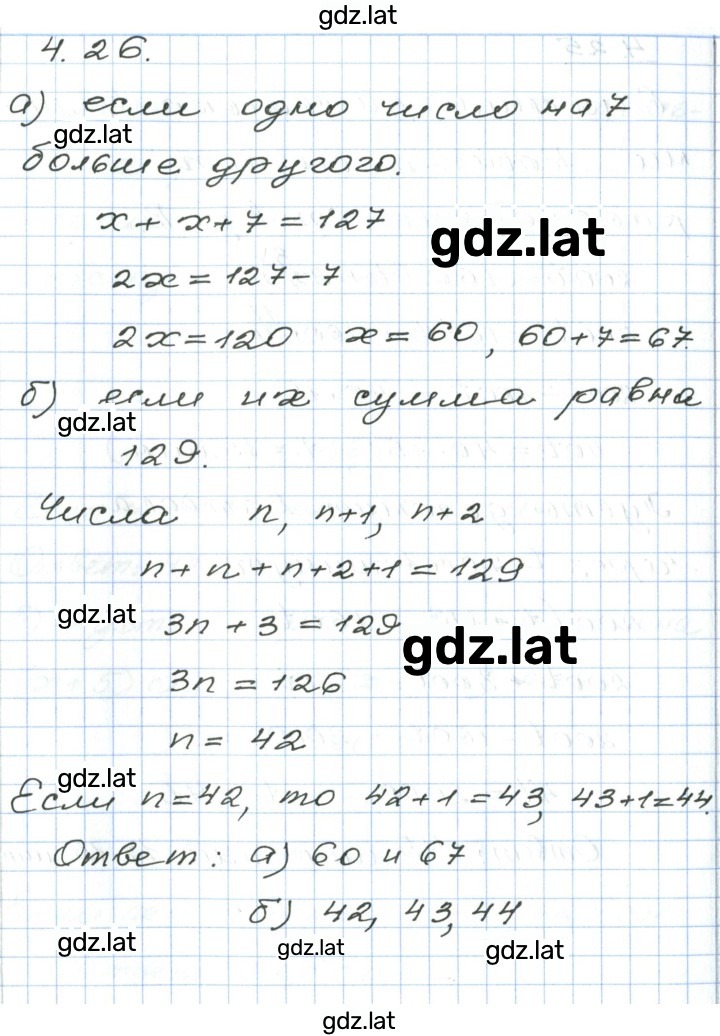 gdz.lat
4.26.
а) если одно число на 7
gdz.lat
больше другого.
x + x + 7 = 127
gdz.lat
2x = 127 - 7
2x = 120 x = 60, 60 + 7 = 67.
б) если их сумма равна
gdz.lat
129.
Числа n, n+1, n+2
n + n + n + 2 + 1 = 129
gdz.lat
3n + 3 = 129
gdz.lat
3n = 126
n = 42
gdz.lat
Если n = 42, то 42 + 1 = 43, 43 + 1 = 44.
Ответ: а) 60 и 67
б) 42, 43, 44
gdz.lat gdz.lat gdz.lat
gdz.lat